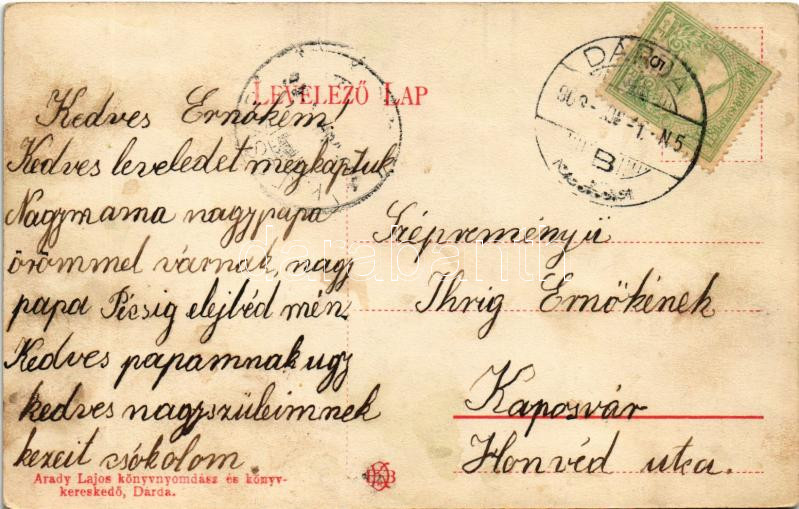 LEVELEZŐ LAP
Kedves Ernőkém!
Kedves leveledet megkaptuk
Nagymama nagypapa
örömmel várnak, nagy
papa Pécsig elejbéd mén.
Kedves papamnak ugy
kedves nagyszüleimnek
kezeit csókolom.
Szépreményű
Ihrig Ernőkének
Kaposvár
Honvéd utca.
DÁRDA
B
Arady Lajos könyvnyomdász és könyv-
kereskedő, Dárda.
darabanth